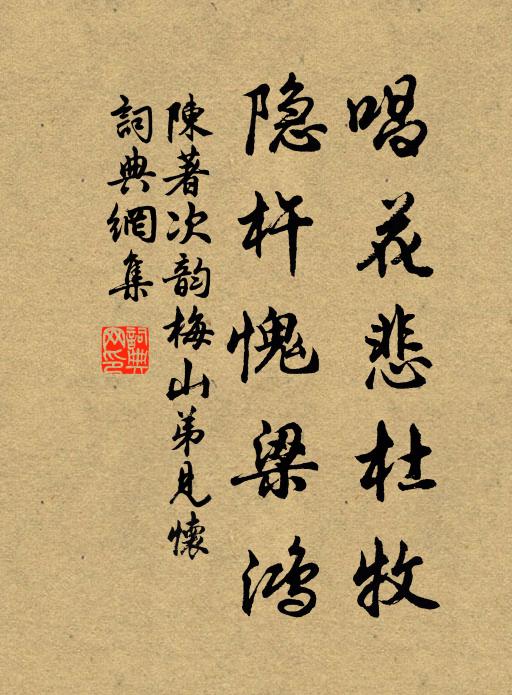 唱花悲杜牧
隐杵愧梁鸿
陳著次韵梅山弟見懷
詞典網集
詞典
网印